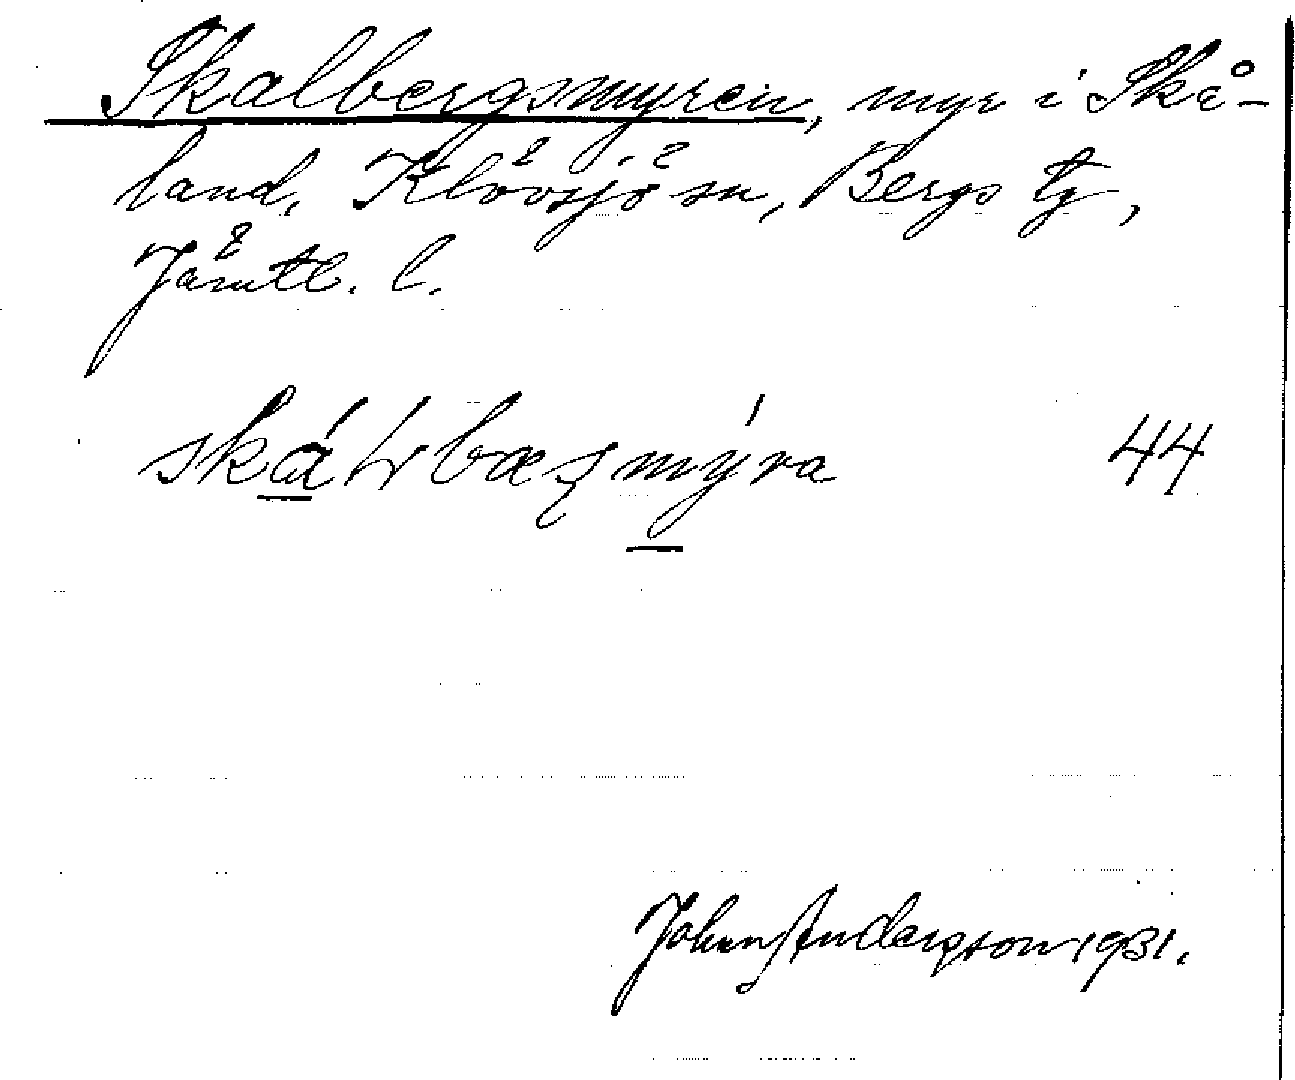 Skalbergsmyren, myr i Skå-
land, Klövsjö sn, Bergs tg,
Jämtl. l.
44
Johan Anderson 1931.